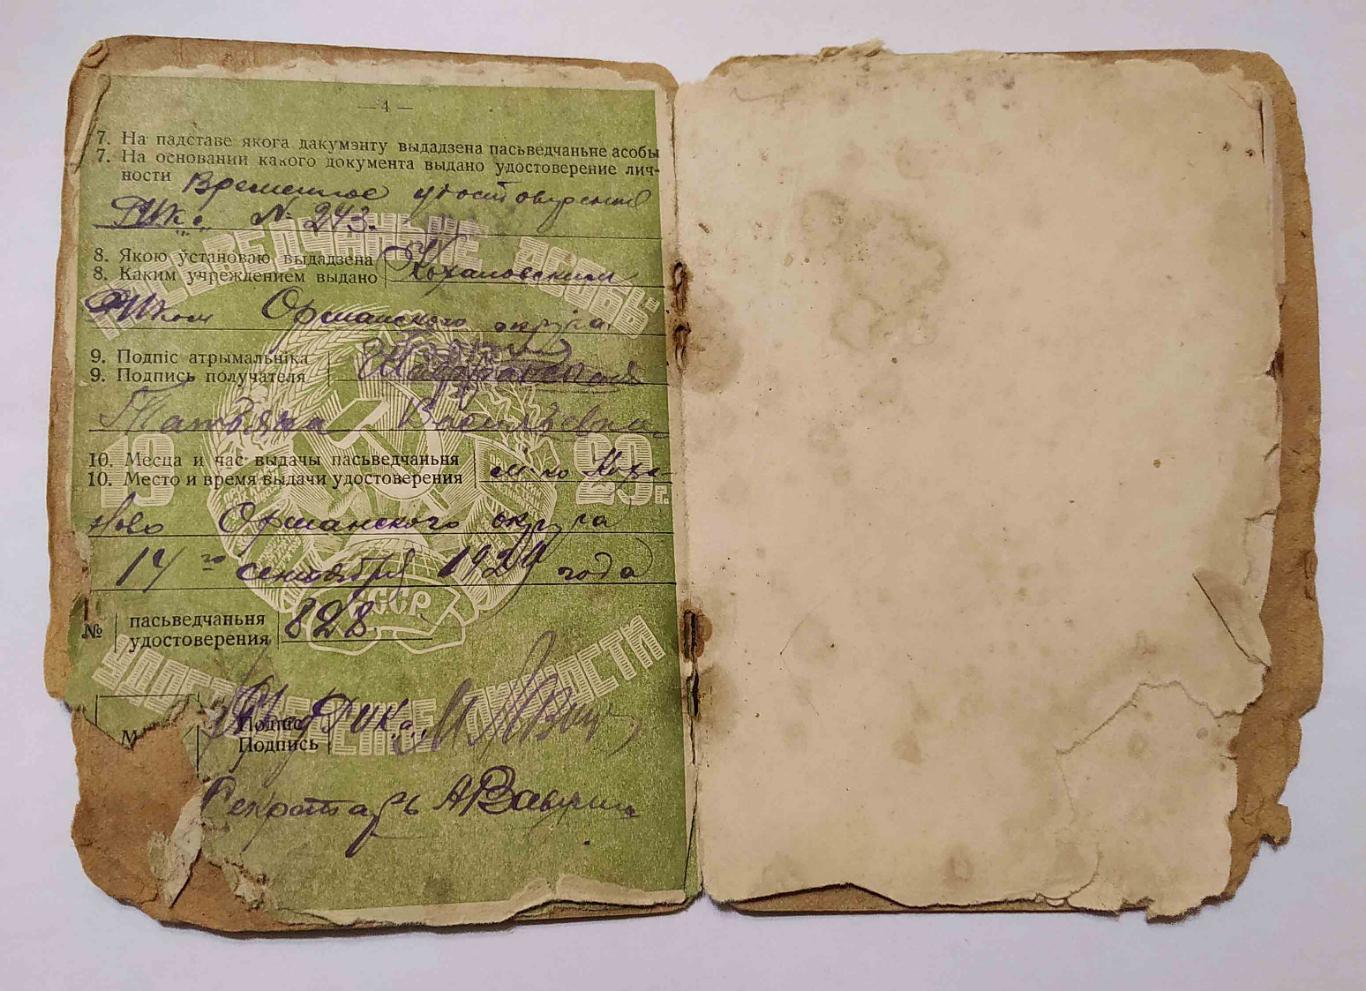 — 4 —
7. На падставе якога дакумэнту выдадзена пасьведчаньне асобы
7. На основании какого документа выдано удостоверение лич-
ности Временное удостоверение
РИКа № 243.
8. Якою установаю выдадзена
8. Каким учреждением выдано Кохановским
РИКом Оршанского округа
9. Подпіс атрымальніка
9. Подпись получателя
Татьяна Васильевна
10. Месца и час выдачы пасьведчаньня
10. Место и время выдачи удостоверения м-ко Коха-
ново Оршанского округа
19 29 г.
14 го сентября 1929 года
СССР
№ пасьведчаньня
удостоверения 828
Подпіс
Подпись
Секретарь